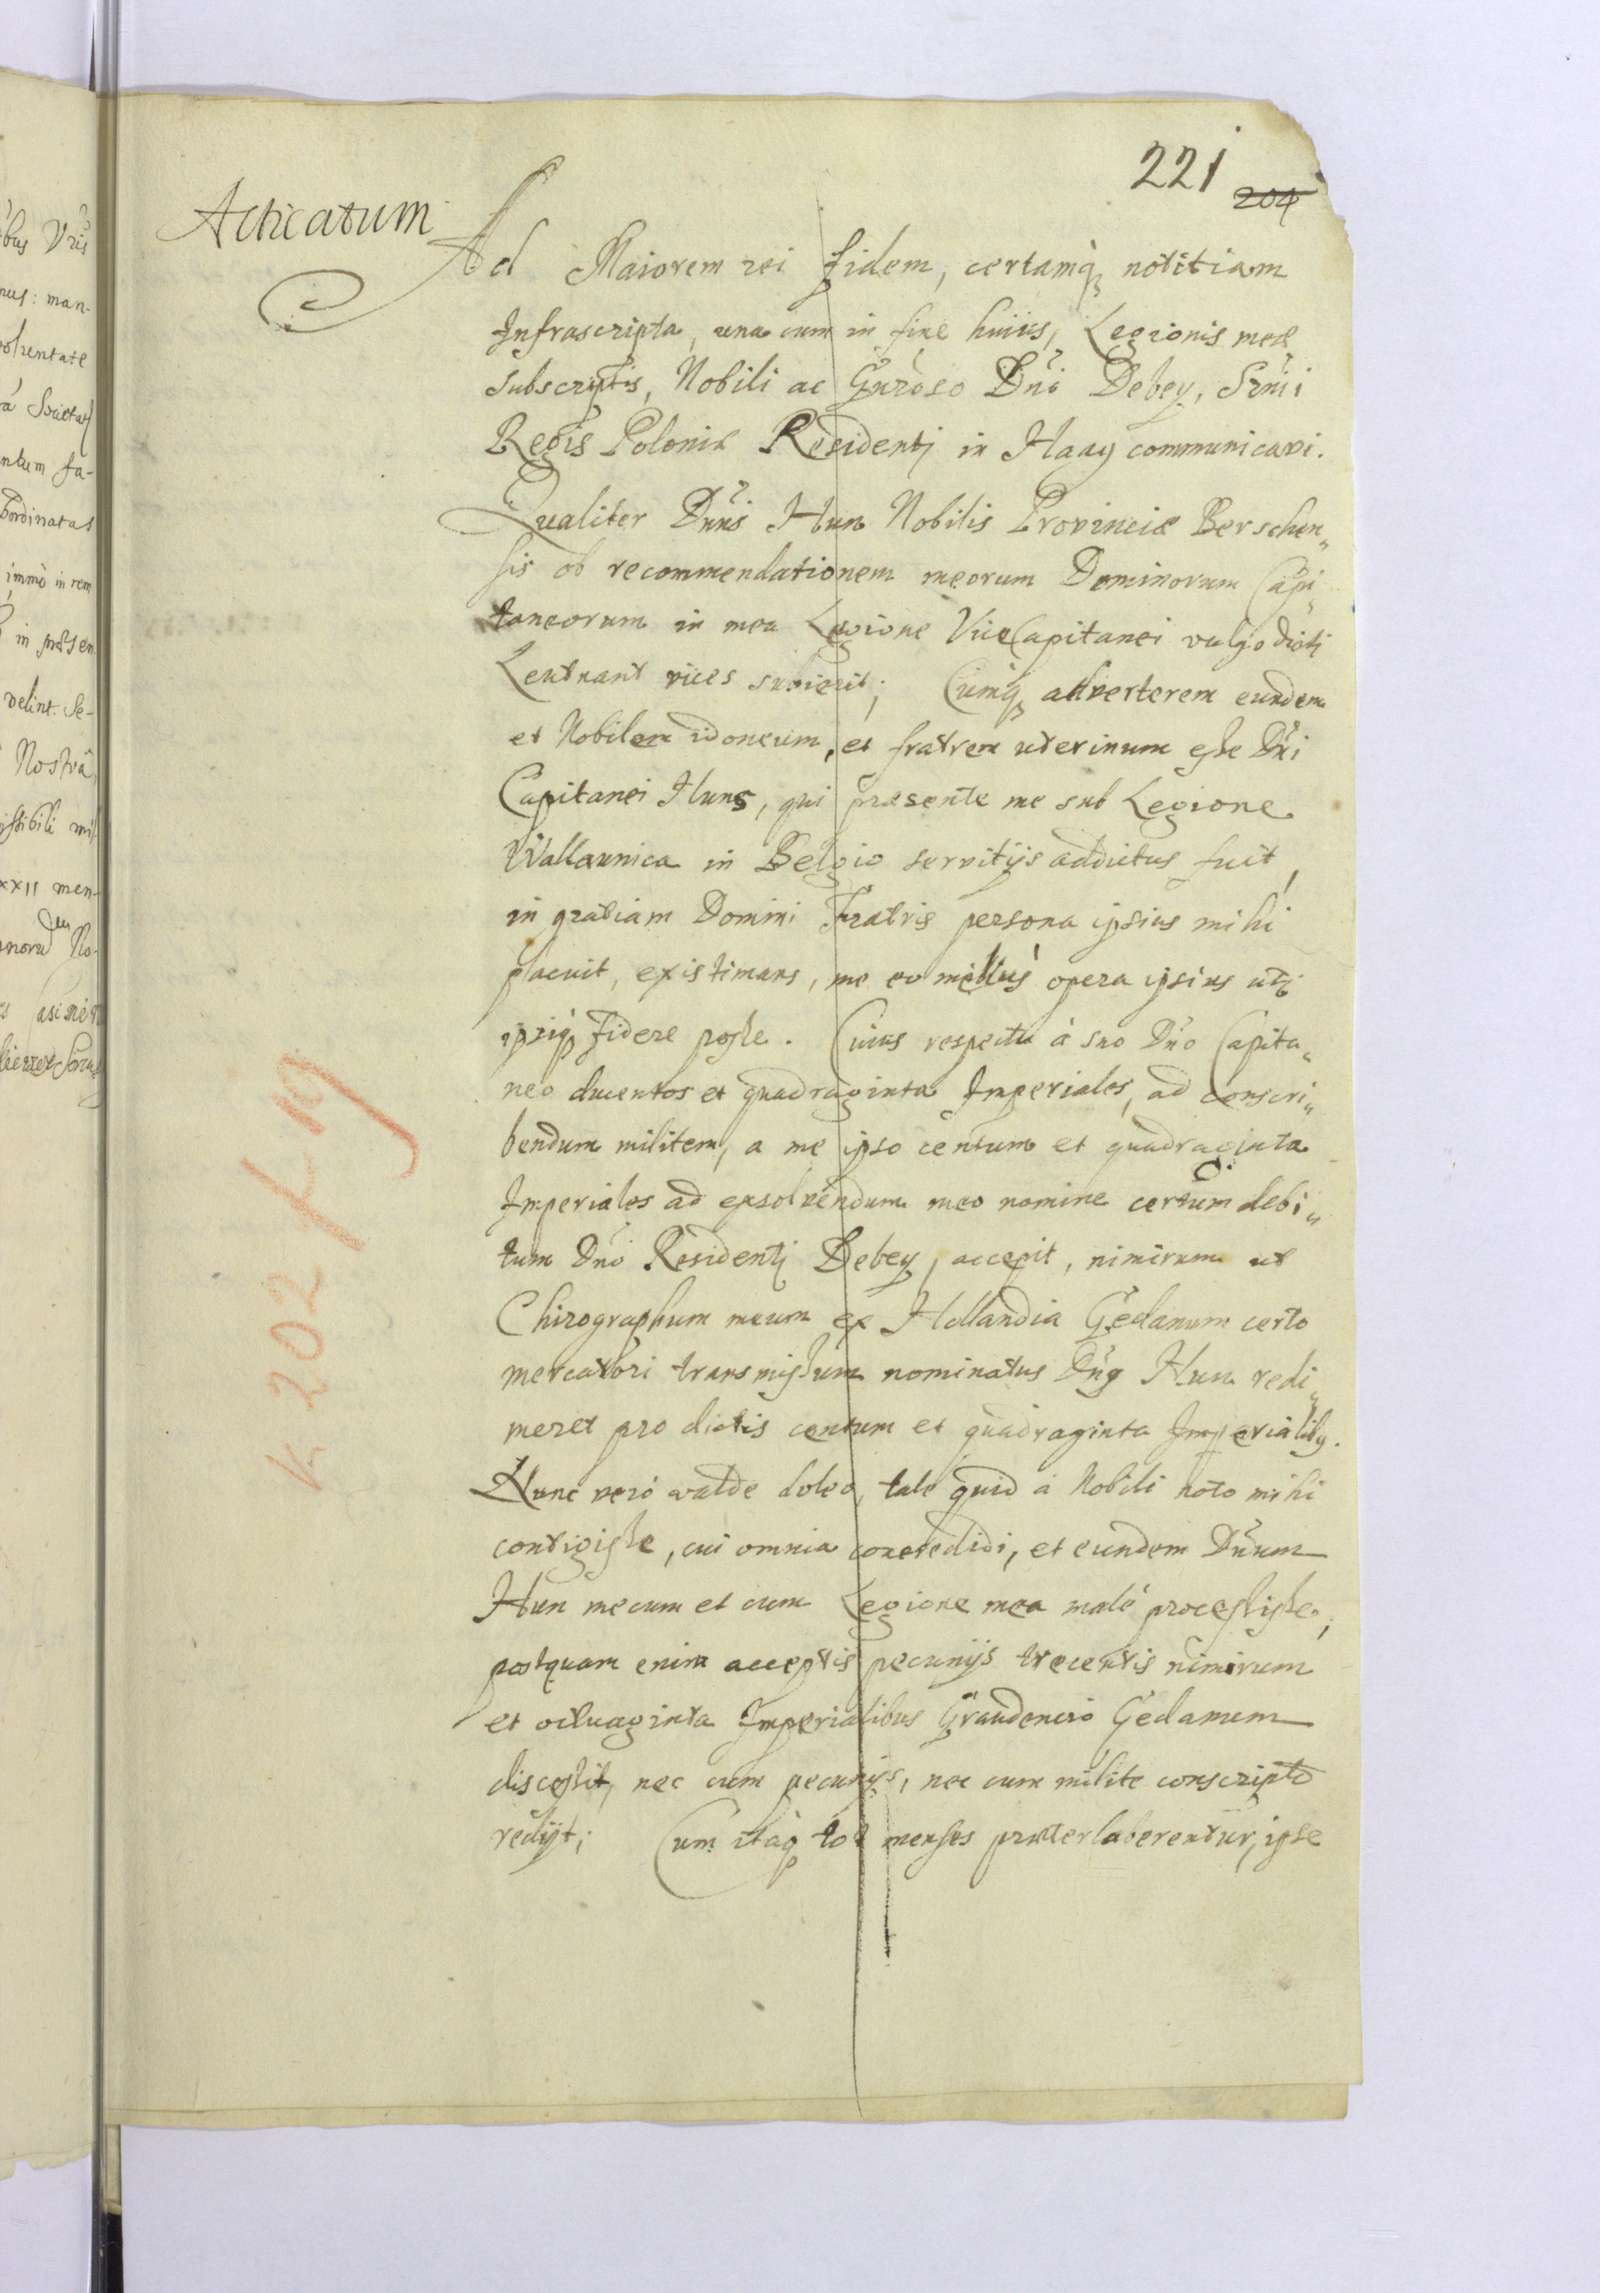 221
204
Acticatum
Ad Maiorem rei fidem, certamq; notitiam
Infrascripta, una cum in fine huius, Legionis meæ
subscriptis, Nobili ac Gñroso Dño Debey, Srmi
Regis Poloniæ Residentj in Haag communicavi.
Qualiter Dnns Hun Nobilis Provinciæ Berschen„
sis ob recommendationem meorum Dominorum Capi„
taneorum in mea Legione ViceCapitanei vulgo dictj
Leutnant vices subierit; Cumq; adverterem eundem
et Nobilem idoneum, et fratrem uterinum esse Dñi
Capitanei Huns, qui præsente me sub Legione
Wallaunica in Belgio servitijs addictus fuit,
in gratiam Domini Fratris persona ipsius mihi
placuit, existimans, me eo meliùs opera ipsius utj
ipsiq; fidere posse. Cuius respectu à suo Dño Capita„
neo ducentos et quadraginta Imperiales, ad conscri„
bendum militem, a me ipso centum et quadraginta
Imperiales ad exsolvendum meo nomine certum debi„
tum Dño Residentj Debey, accepit, nimirum ut
Chirographum meum ex Hollandia Gedanum certo
mercatori transmissum nominatus Dñs Hun redi„
meret pro dictis centum et quadraginta Imperialibg.
Nunc verò valde doleo, tale quid à Nobili noto mihi
contigisse, cui omnia concredidi, et eundem Dñum
Hun mecum et cum Legione mea malè processisse;
postquam enim acceptis pecunijs trecentis nimirum
et octuaginta Imperialibus Graudencio Gedanum
discessit, nec cum pecunijs, nec cum milite conscripto
redijt; Cum itaq; tot menses præterlaberentur, ipse
k 202 f 19
ibus Vris
nus: man-
voluntate
à Societatj
ntum fa-
bordinatas
immò in rem
in præsen
velint. Se-
Nostrâ
xxii men-
No-